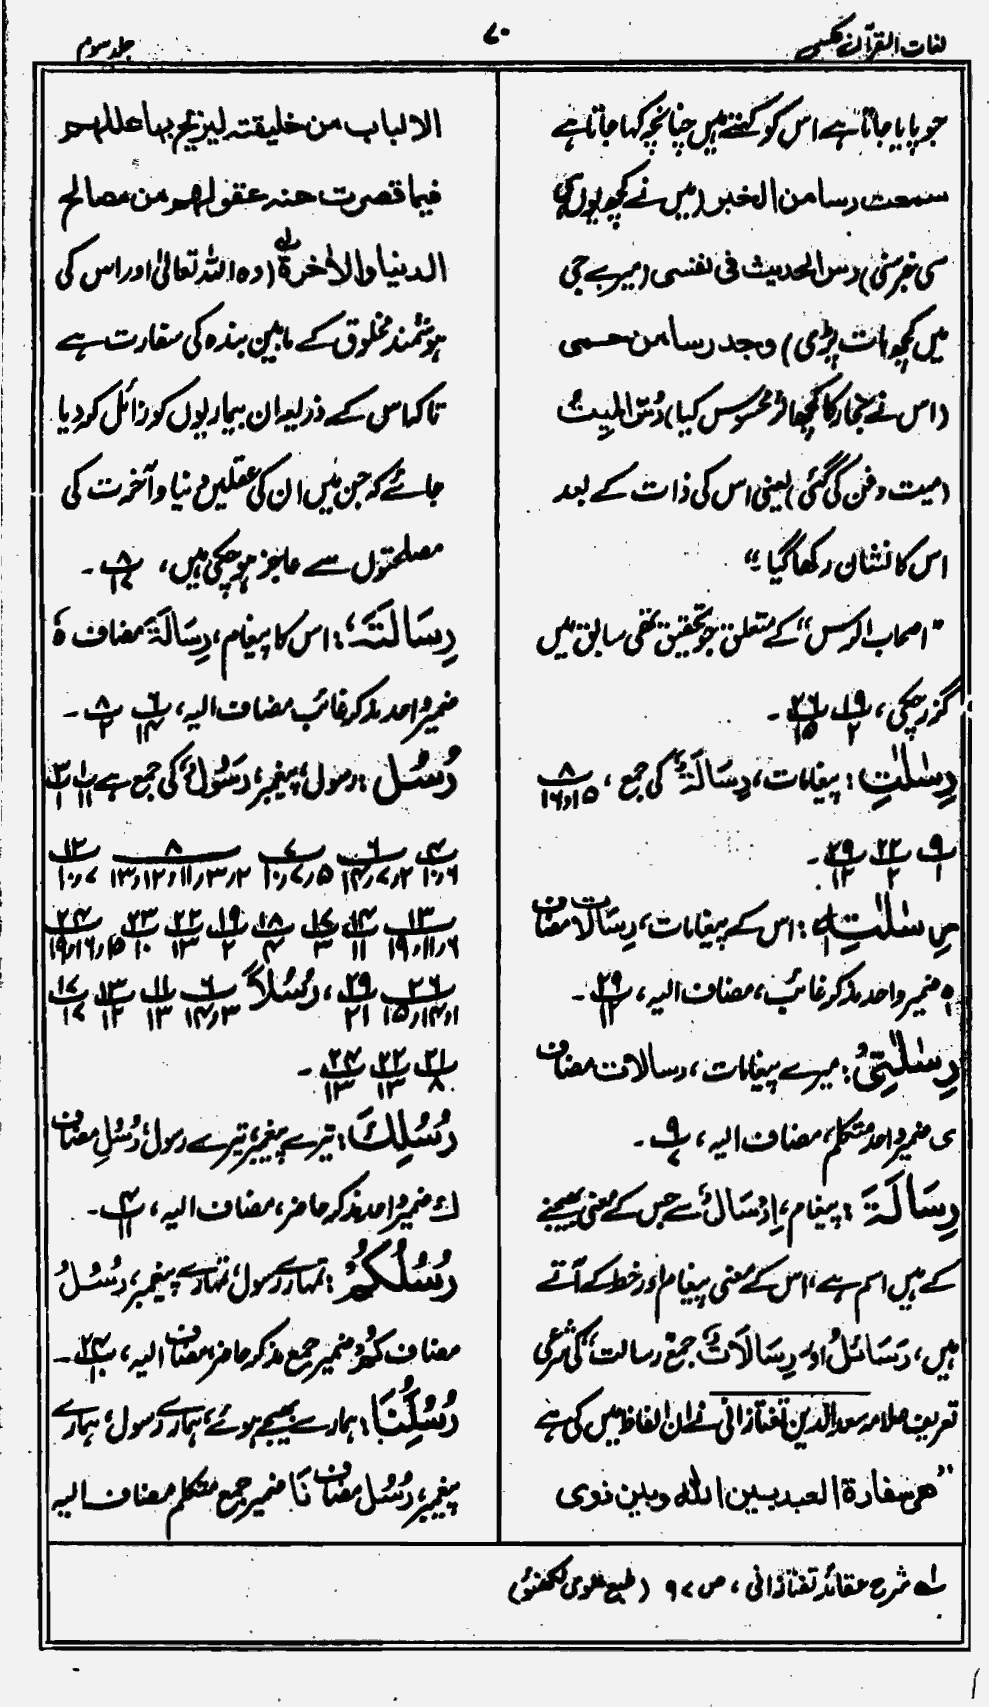 لغات القرآن
۷۰
جلد سوم
جو پایا جاتا ہے اس کو کہتے ہیں چنانچہ کہا جاتا ہے
سمعت رسا من الخبر (میں نے کچھ یوں ہی
سی خبر سنی) رس الحدیث فی نفسی (میرے جی
میں کچھ بات پڑی) وجد رسا من حمی
(اس نے بخار کا کچھ اثر محسوس کیا) رُسَّ المیتُ
(میت دفن کی گئی) یعنی اس کی ذات کے بعد
اس کا نشان رکھا گیا۔"
"اصحاب الرس" کے متعلق جو تحقیق تھی سابق میں
گزر چکی، ۱۹/۲ ۲۶/۱۵ ۔
رِسٰلٰتِ : پیغامات، رِسَالَۃٌ کی جمع، ۸/۱۵و۱۶
۹/۱ ۲۲/۲ ۲۹/۱۲ ۔
رِسٰلٰتِہٖ : اس کے پیغامات، رِسَالات مضاف
ہ ضمیر واحد مذکر غائب، مضاف الیہ، ۲۹/۱۲ ۔
رِسٰلٰتِیْ : میرے پیغامات، رسالات مضاف
ی ضمیر واحد متکلم، مضاف الیہ، ۹/۷ ۔
رِسَالَۃَ : پیغام، اِرْسَالٌ سے جس کے معنی بھیجنے
کے ہیں اسم ہے، اس کے معنی پیغام اور خط کے آتے
ہیں، رَسَائلُ اور رِسَالَاتٌ جمع، رسالت، کی شرعی
تعریف علامہ سعد الدین تفتازانی نے ان الفاظ میں کی ہے
"ھی سفارۃ العبد بین اللہ وبین ذوی
الالباب من خلیقتہ لیزیح بہا عللہم
فیما قصرت عنہ عقولہم من مصالح
الدنیا والاٰخرۃ لہ (وہ اللہ تعالیٰ اور اس کی
ہوشمند مخلوق کے مابین بندہ کی سفارت ہے
تاکہ اس کے ذریعہ ان بیماریوں کو زائل کر دیا
جائے کہ جن میں ان کی عقلیں دنیا و آخرت کی
مصلحتوں سے عاجز ہو چکی ہیں، ۸/۱۷ ۔
رِسَالَتَہٗ : اس کا پیغام، رِسَالَۃَ مضاف ہٗ
ضمیر واحد مذکر غائب مضاف الیہ، ۶/۱۴ ۸/۲ ۔
رُسُلٌ : رسول، پیغمبر، رَسُوْلٌ کی جمع ہے ۱/۱۱ ۳/۱
۴/۶و۱۰ ۶/۲و۷و۱۴ ۷/۵و۷و۱۰ ۸/۲و۳و۱۱و۱۲و۱۳ ۱۲/۷و۱۰
۱۳/۶و۱۱و۱۹ ۱۴/۱۱ ۱۷/۳ ۱۸/۴ ۱۹/۲ ۲۲/۱۳ ۲۳/۱۰ ۲۴/۱۵و۱۶و۱۹
۲۶/۱و۱۴و۱۵ ۲۹/۲۱، رُسُلًا ۶/۳و۱۴ ۱۱/۱۳ ۱۳/۱۲ ۱۷/۱۷
۲۱/۸ ۲۲/۱۳ ۲۴/۱۳ ۔
رُسُلِكَ : تیرے پیغمبر، تیرے رسول، رُسُلِ مضاف
كَ ضمیر واحد مذکر حاضر، مضاف الیہ، ۴/۱۱ ۔
رُسُلُكُمْ : تمہارے رسول، تمہارے پیغمبر، رُسُلُ
مضاف كُمْ ضمیر جمع مذکر حاضر، مضاف الیہ، ۲۴/۱۰ ۔
رُسُلُنَا : ہمارے بھیجے ہوئے، ہمارے رسول، ہمارے
پیغمبر، رُسُل مضاف نَا ضمیر جمع متکلم مضاف الیہ
لہ شرح عقائد تفتازانی، ص ۹۷ (طبع علوی لکھنؤ)